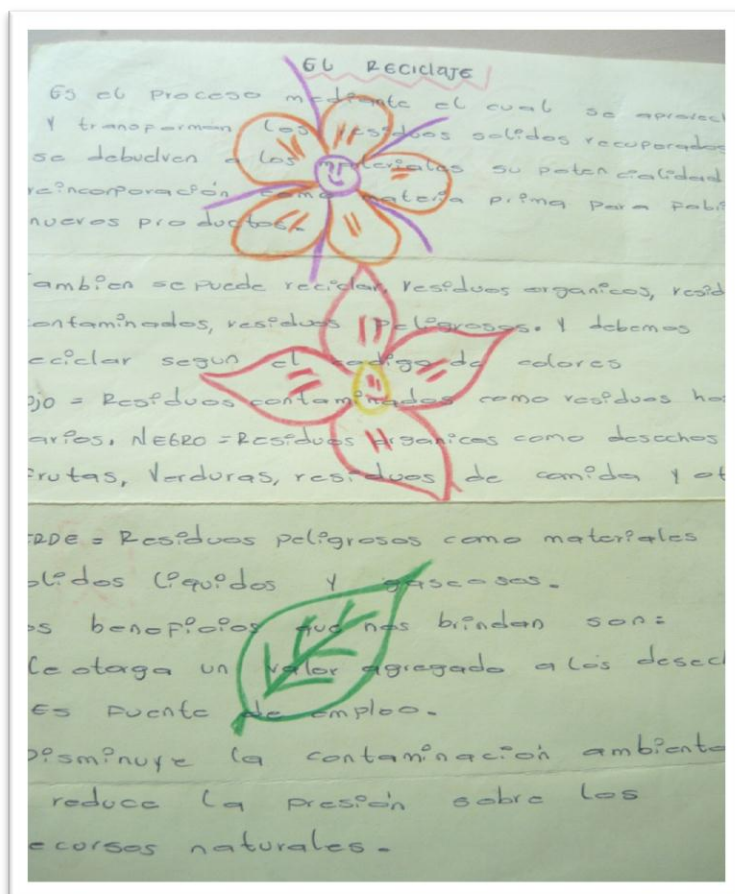 EL RECICLAJE
Es el proceso mediante el cual se aprovec
Y transforman los residuos solidos recuperados
se debuelven a los materiales su potencialidad
reincorporación como materia prima para fabri
nuevos productos.
ambien se puede reciclar, residuos organicos, resid
ontaminados, residuos peligrosos. Y debemos
eciclar segun el codigo de colores
ojo = Residuos contaminados como residuos ho
arios. NEGRO = Residuos organicos como desechos
frutas, Verduras, residuos de comida y ot
ERDE = Residuos peligrosos como materiales
olidos liquidos y gaseosos.
os beneficios que nos brindan son:
le otorga un valor agregado a los desech
Es Fuente de empleo.
Disminuye la contaminación ambienta
reduce la presión sobre los
ecursos naturales.